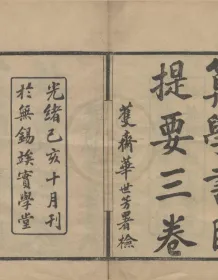 算學書目
提要三卷
華世芳署檢
光緒己亥十月刊
於無錫竢實學堂